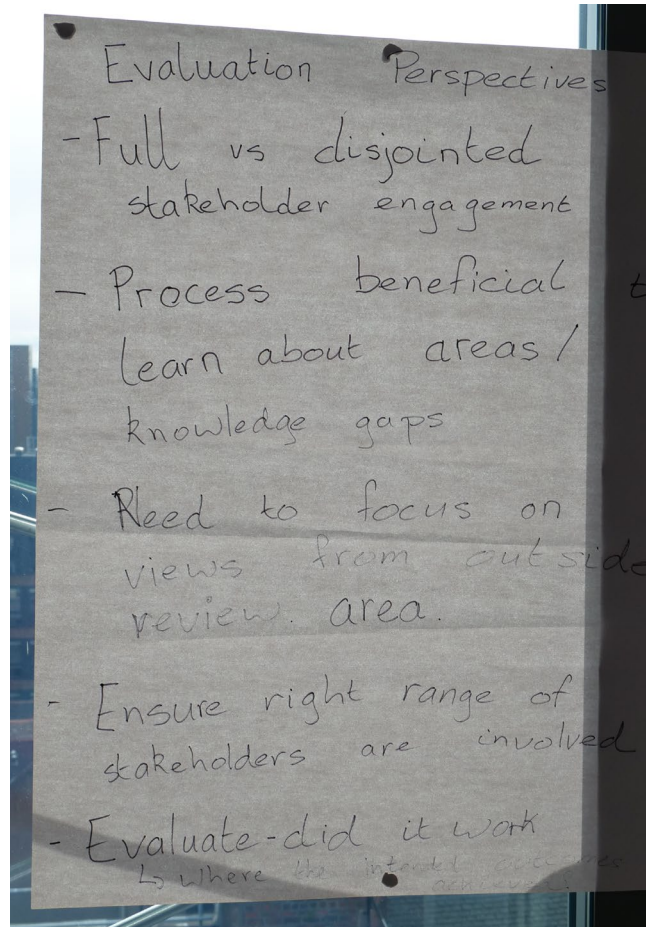 Evaluation Perspectives
- Full vs disjointed
stakeholder engagement
- Process beneficial t
learn about areas/
knowledge gaps
- Need to focus on
views from outside
review. area.
- Ensure right range of
stakeholders are involved
- Evaluate - did it work
↳ where the intended outcomes
achieved.